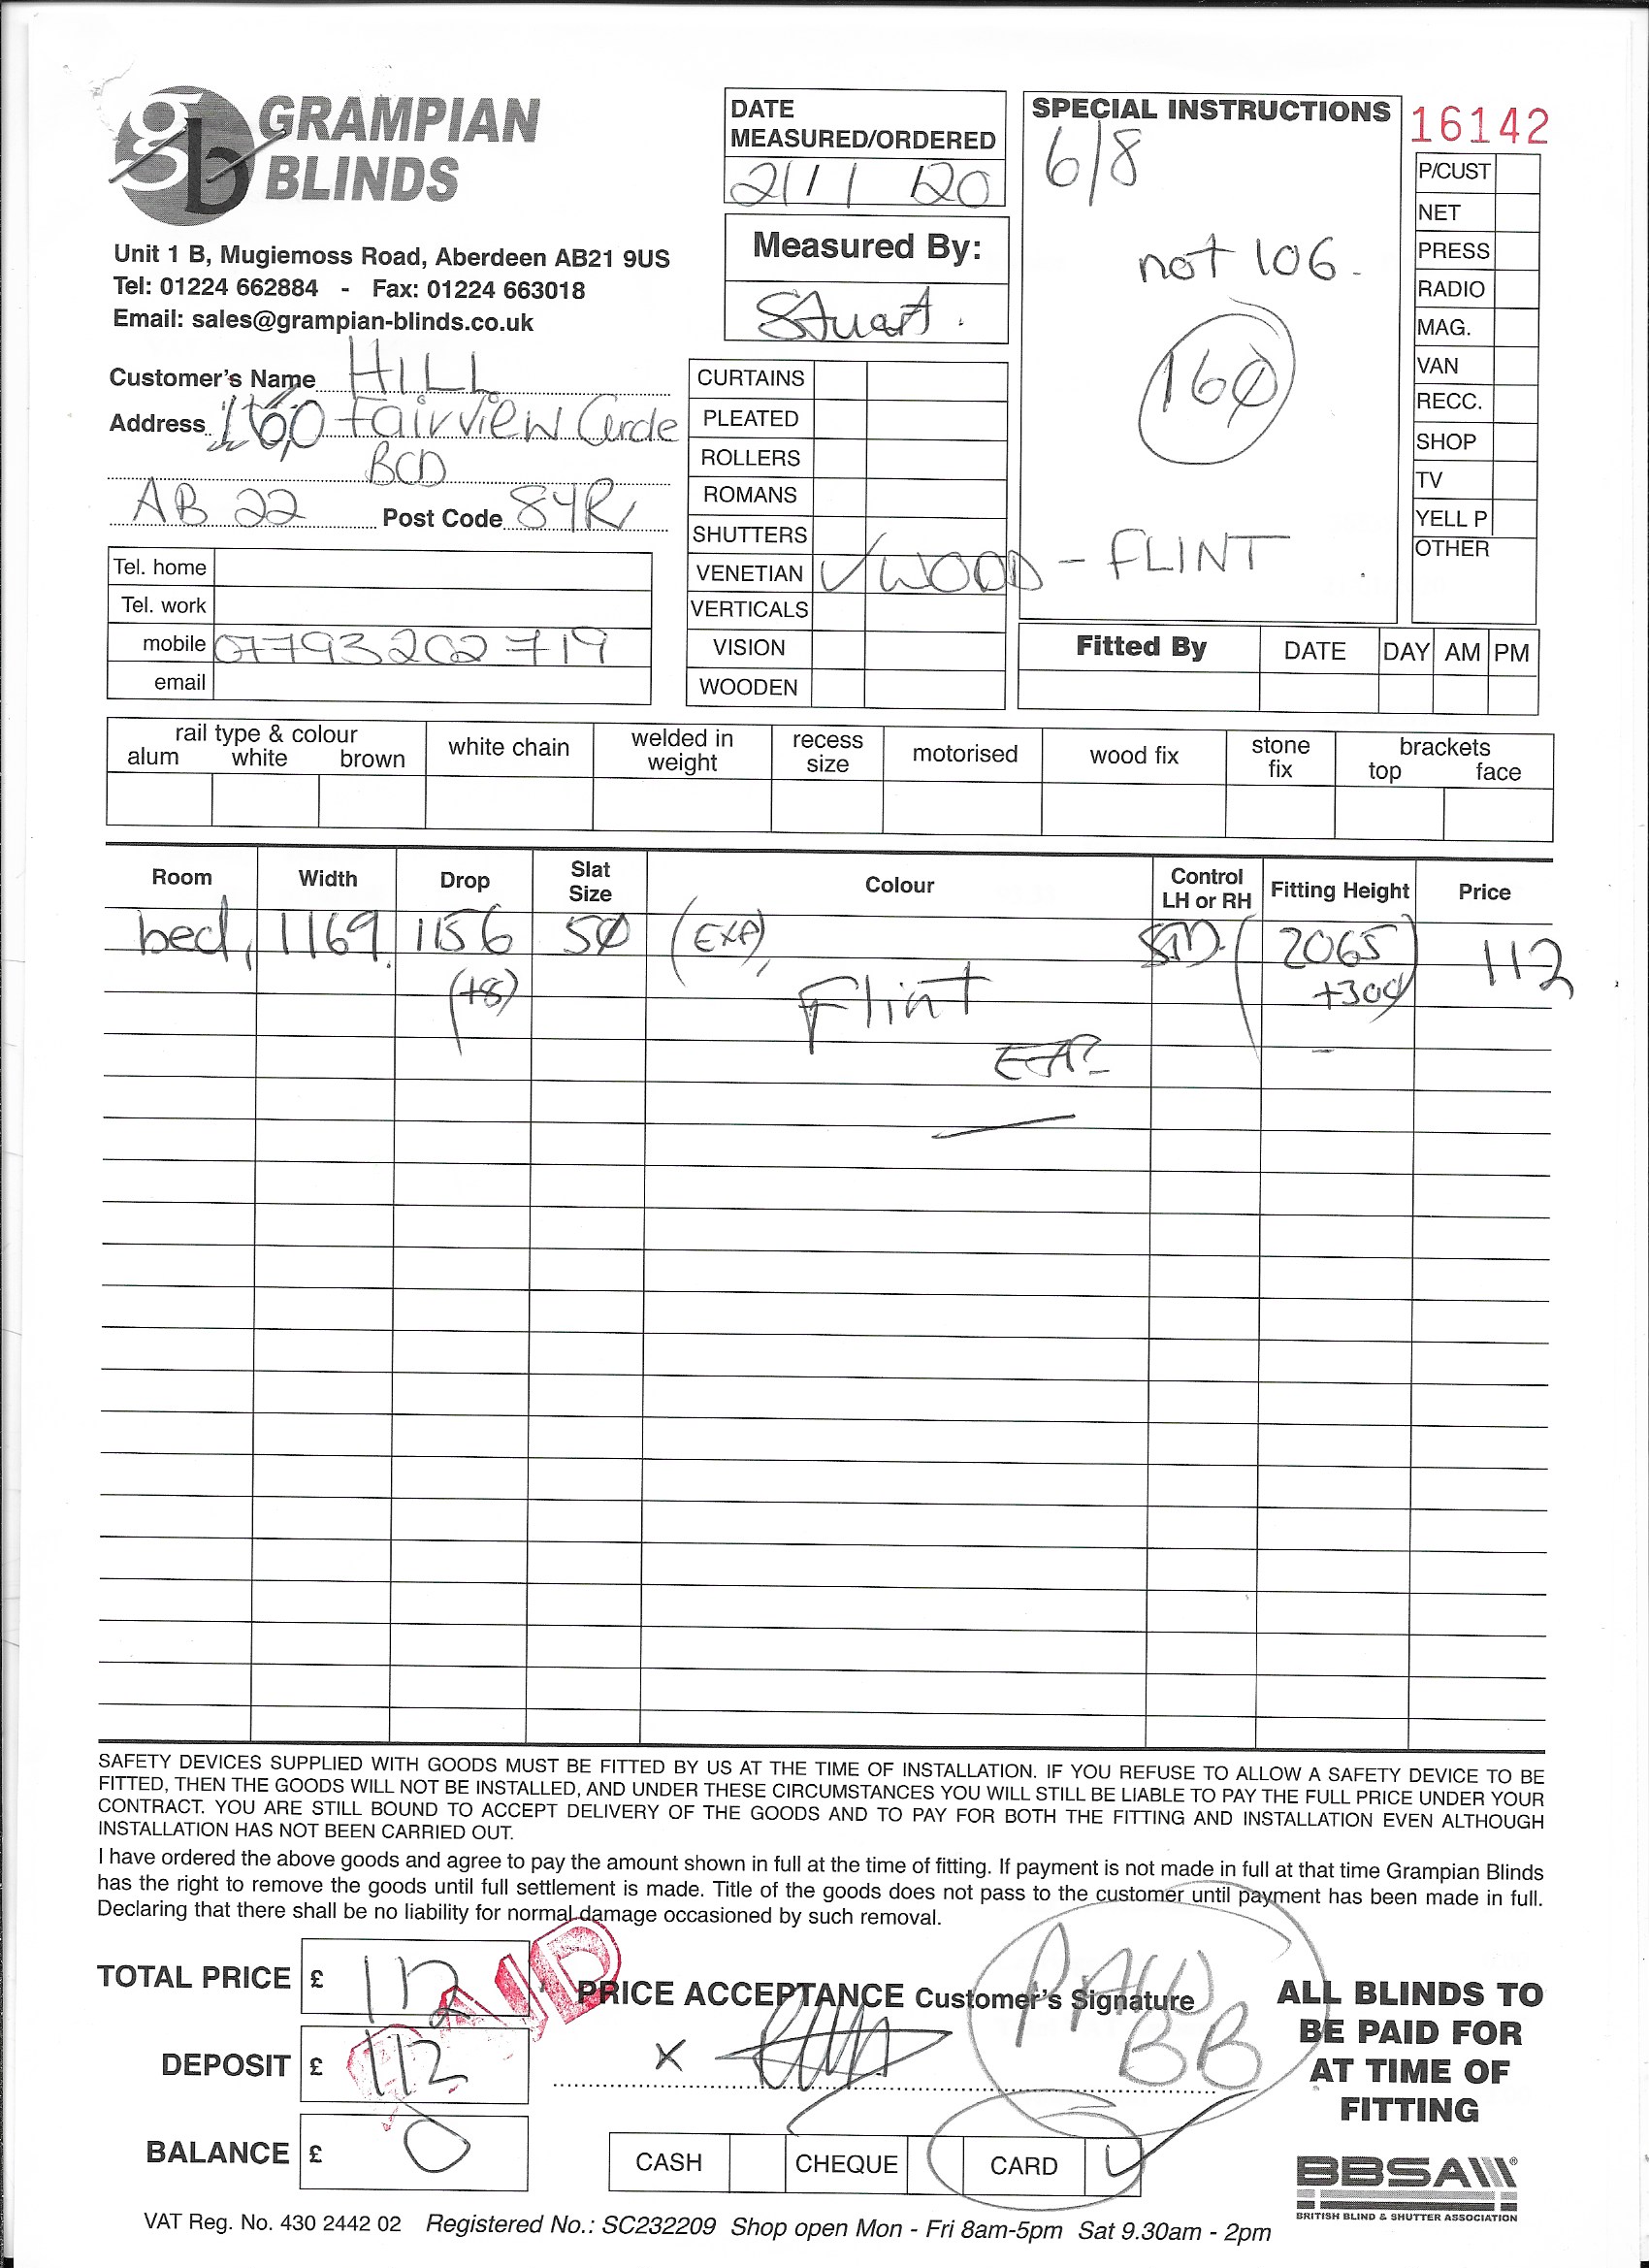 GRAMPIAN
BLINDS
Unit 1 B, Mugiemoss Road, Aberdeen AB21 9US
Tel: 01224 662884 - Fax: 01224 663018
Email: sales@grampian-blinds.co.uk
Customer's Name HILL
Address 160 Fairview Circle
BCD
AB 22 Post Code 8YR
Tel. home
Tel. work
mobile 07793202719
email
DATE
MEASURED/ORDERED
21/1/20
Measured By:
Stuart.
CURTAINS
PLEATED
ROLLERS
ROMANS
SHUTTERS
VENETIAN ✓ WOOD - FLINT
VERTICALS
VISION
WOODEN
SPECIAL INSTRUCTIONS
6/8
not 106.
160
16142
P/CUST
NET
PRESS
RADIO
MAG.
VAN
RECC.
SHOP
TV
YELL P
OTHER
Fitted By DATE DAY AM PM
rail type & colour
alum white brown
white chain
welded in
weight
recess
size
motorised
wood fix
stone
fix
brackets
top face
Room Width Drop Slat Size Colour Control LH or RH Fitting Height Price
bed, 1169 1156 50 (EXA), STD. (2065 112
(+8) Flint +300)
SAFETY DEVICES SUPPLIED WITH GOODS MUST BE FITTED BY US AT THE TIME OF INSTALLATION. IF YOU REFUSE TO ALLOW A SAFETY DEVICE TO BE
FITTED, THEN THE GOODS WILL NOT BE INSTALLED, AND UNDER THESE CIRCUMSTANCES YOU WILL STILL BE LIABLE TO PAY THE FULL PRICE UNDER YOUR
CONTRACT. YOU ARE STILL BOUND TO ACCEPT DELIVERY OF THE GOODS AND TO PAY FOR BOTH THE FITTING AND INSTALLATION EVEN ALTHOUGH
INSTALLATION HAS NOT BEEN CARRIED OUT.
I have ordered the above goods and agree to pay the amount shown in full at the time of fitting. If payment is not made in full at that time Grampian Blinds
has the right to remove the goods until full settlement is made. Title of the goods does not pass to the customer until payment has been made in full.
Declaring that there shall be no liability for normal damage occasioned by such removal.
TOTAL PRICE £ 112
DEPOSIT £ 112
BALANCE £ 0
PAID
PRICE ACCEPTANCE Customer's Signature
x
PAID
BB
CASH CHEQUE CARD ✓
ALL BLINDS TO
BE PAID FOR
AT TIME OF
FITTING
BBSA
BRITISH BLIND & SHUTTER ASSOCIATION
VAT Reg. No. 430 2442 02 Registered No.: SC232209 Shop open Mon - Fri 8am-5pm Sat 9.30am - 2pm